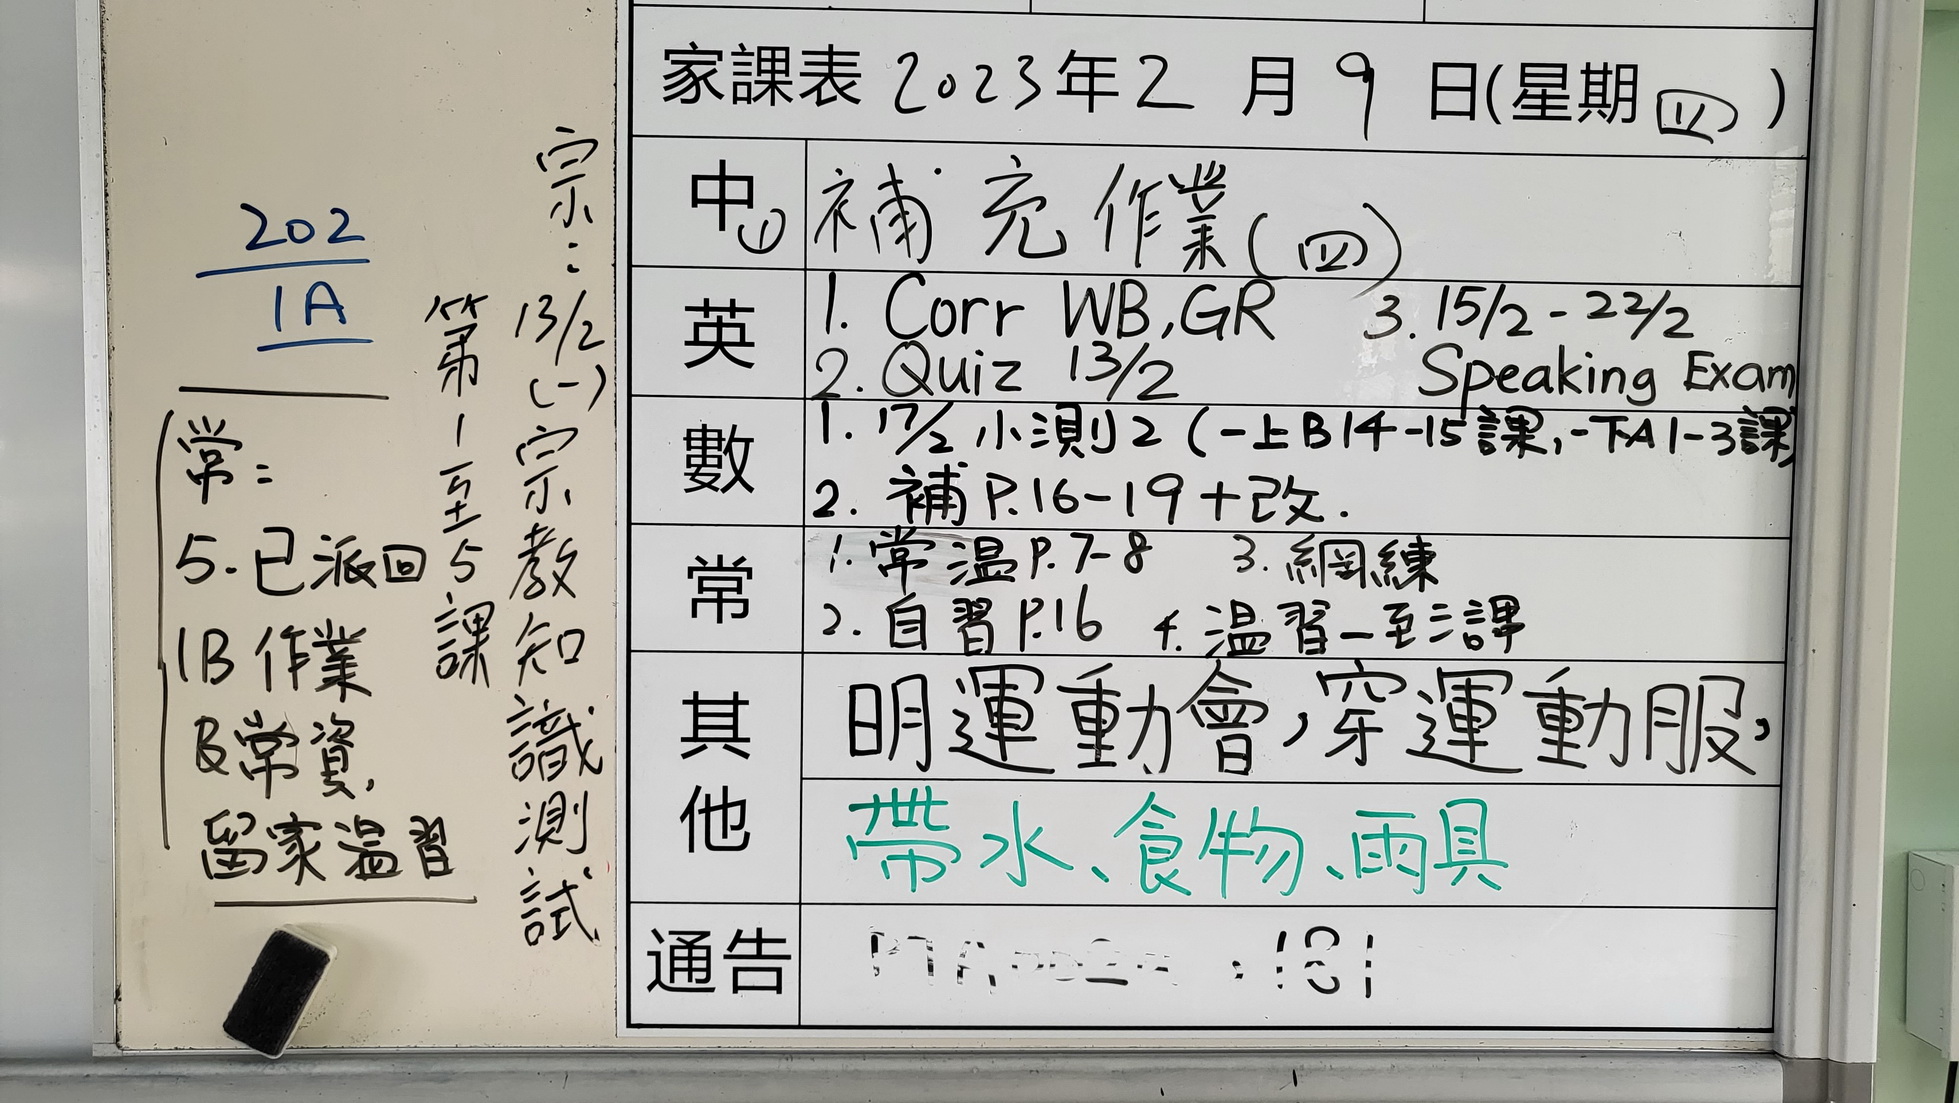 家課表 2023年2月9日(星期四)
中 ① 補充作業(四)
英 1. Corr WB, GR 3. 15/2 - 22/2
2. Quiz 13/2 Speaking Exam
數 1. 17/2 小測2 (一上B14-15課,一下A1-3課)
2. 補P.16-19+改.
常 1. 常溫P.7-8 3. 網練
2. 自習P.16 4. 溫習一至三課
其他 明運動會,穿運動服,
帶水、食物、雨具
通告 181
宗:13/2(一)宗教知識測試
第1至5課
202
1A
常:
5.已派回
1B作業
B常資,
留家溫習